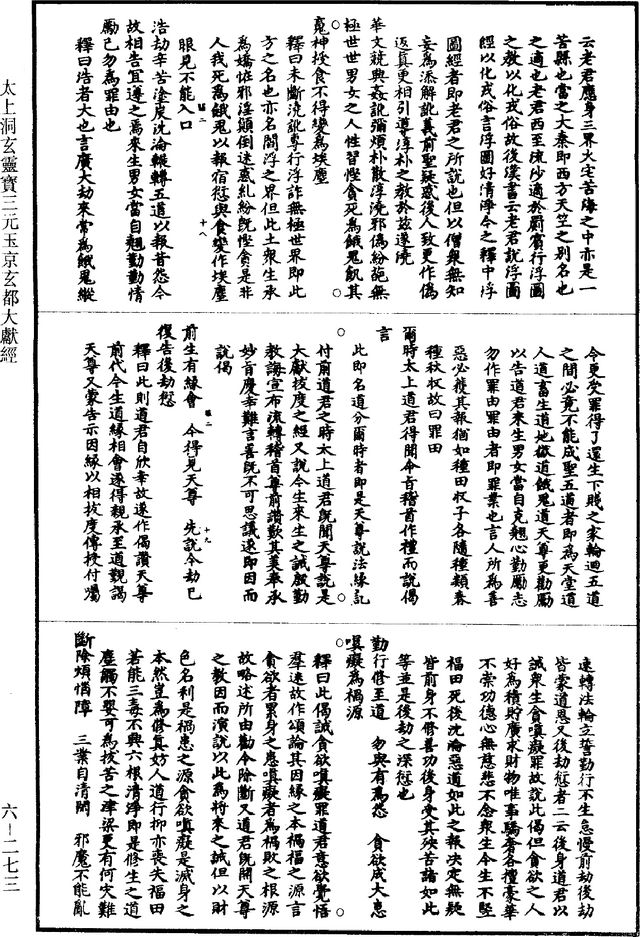 云老君應身三界火宅苦海之中亦是一
苦縣也當之大秦即西方天竺之別名也
之適也老君西至流沙適於罽賓行浮圖
之教以化戎俗故後漢書云老君說浮圖
經以化戎俗言浮圖好清淨今之釋中浮
圖經者即老君之所說也但以僧衆無知
妄為添解訛義前聖疑惑後人致更作偽
返真更相引導淳朴之教於茲遂隢
華文競興姦訛彌煩朴散淳澆邪偽紛葩無
極世世男女之人性習慳貪死為餓鬼飢其
魔神投食不得變為埃塵
釋曰未斷澆訛專行浮詐無極世界即此
方之名也亦名閻浮之界但此土衆生承
為嬌詐邪淫顛倒迷惑糺紛既慳貪是非
人我死為餓鬼以報宿愆與食變作埃塵
眼見不能入口
浩劫辛苦塗炭沈淪輾轉五道以報昔怨今
故相告宜遵之焉來生男女當自翹勤勤情
勵已勿為罪由也
釋曰浩者大也言廣大劫來常為餓鬼縱
今更受罪得了還生下賤之家輪迴五道
之間必竟不能成聖五道者即為天堂道
人道畜生道地獄道餓鬼道天尊更勸勵
以告道君來生男女當自克翹心勤勵志
勿作罪由罪由者即罪業也言人所為善
惡必獲其報猶如種田収子各隨種類春
種秋収故曰罪田
爾時太上道君得聞命旨稽首作禮而說偈
言
此即名道分爾時者即是天尊說法緣訖
付前道君之時太上道君既聞天尊說是
大獻拔度之經又說今生來生之誡慇勤
教誨宣布流轉稽首尊前讚歎其美奉承
妙旨慶幸難言喜既不可思議遂即因而
說偈
前生有緣會　今得見天尊　先說今劫已
復告後劫愆
釋曰此則道君自欣幸故遂作偈讚天尊
前代今生道緣相會遂得親承至道觀謁
天尊又蒙告示因緣以相拔度傳授付囑
速轉法輪立誓勤行不生怠慢前劫後劫
皆蒙道恩又後劫愆者二云後身道君以
誡衆生貪嗔癡罪故說此偈但貪欲之人
好為積貯廣求財物唯事驕奢各擅豪華
不崇功德心無慈悲不念衆生今生不堅
福田死後沈淪惡道如此之報決定無疑
皆前身不修善功後身受其殃苦諸如此
等並是後劫之深愆也
勤行修至道　勿與有為怨　貪欲成大患
嗔癡為禍源
釋曰此偈誡貪欲嗔癡罪道君意欲覺悟
羣迷故作頌論其因緣之本禍福之源言
貪欲者累身之應嗔癡者為禍敗之根源
故略述所由勸令除斷又道君既聞天尊
之教因而演說以此為將來之誡但以財
色名利是禍患之源貪欲嗔癡是滅身之
本然豈為修真妨人道行抑亦喪失福田
若能三毒不興六根清淨即是修生之道
塵觸不嬰可為拔苦之津梁更有何灾難
斷除煩惱障　三業自清閑　邪魔不能亂
太上洞玄靈寶三元玉京玄都大獻經
六－二七三